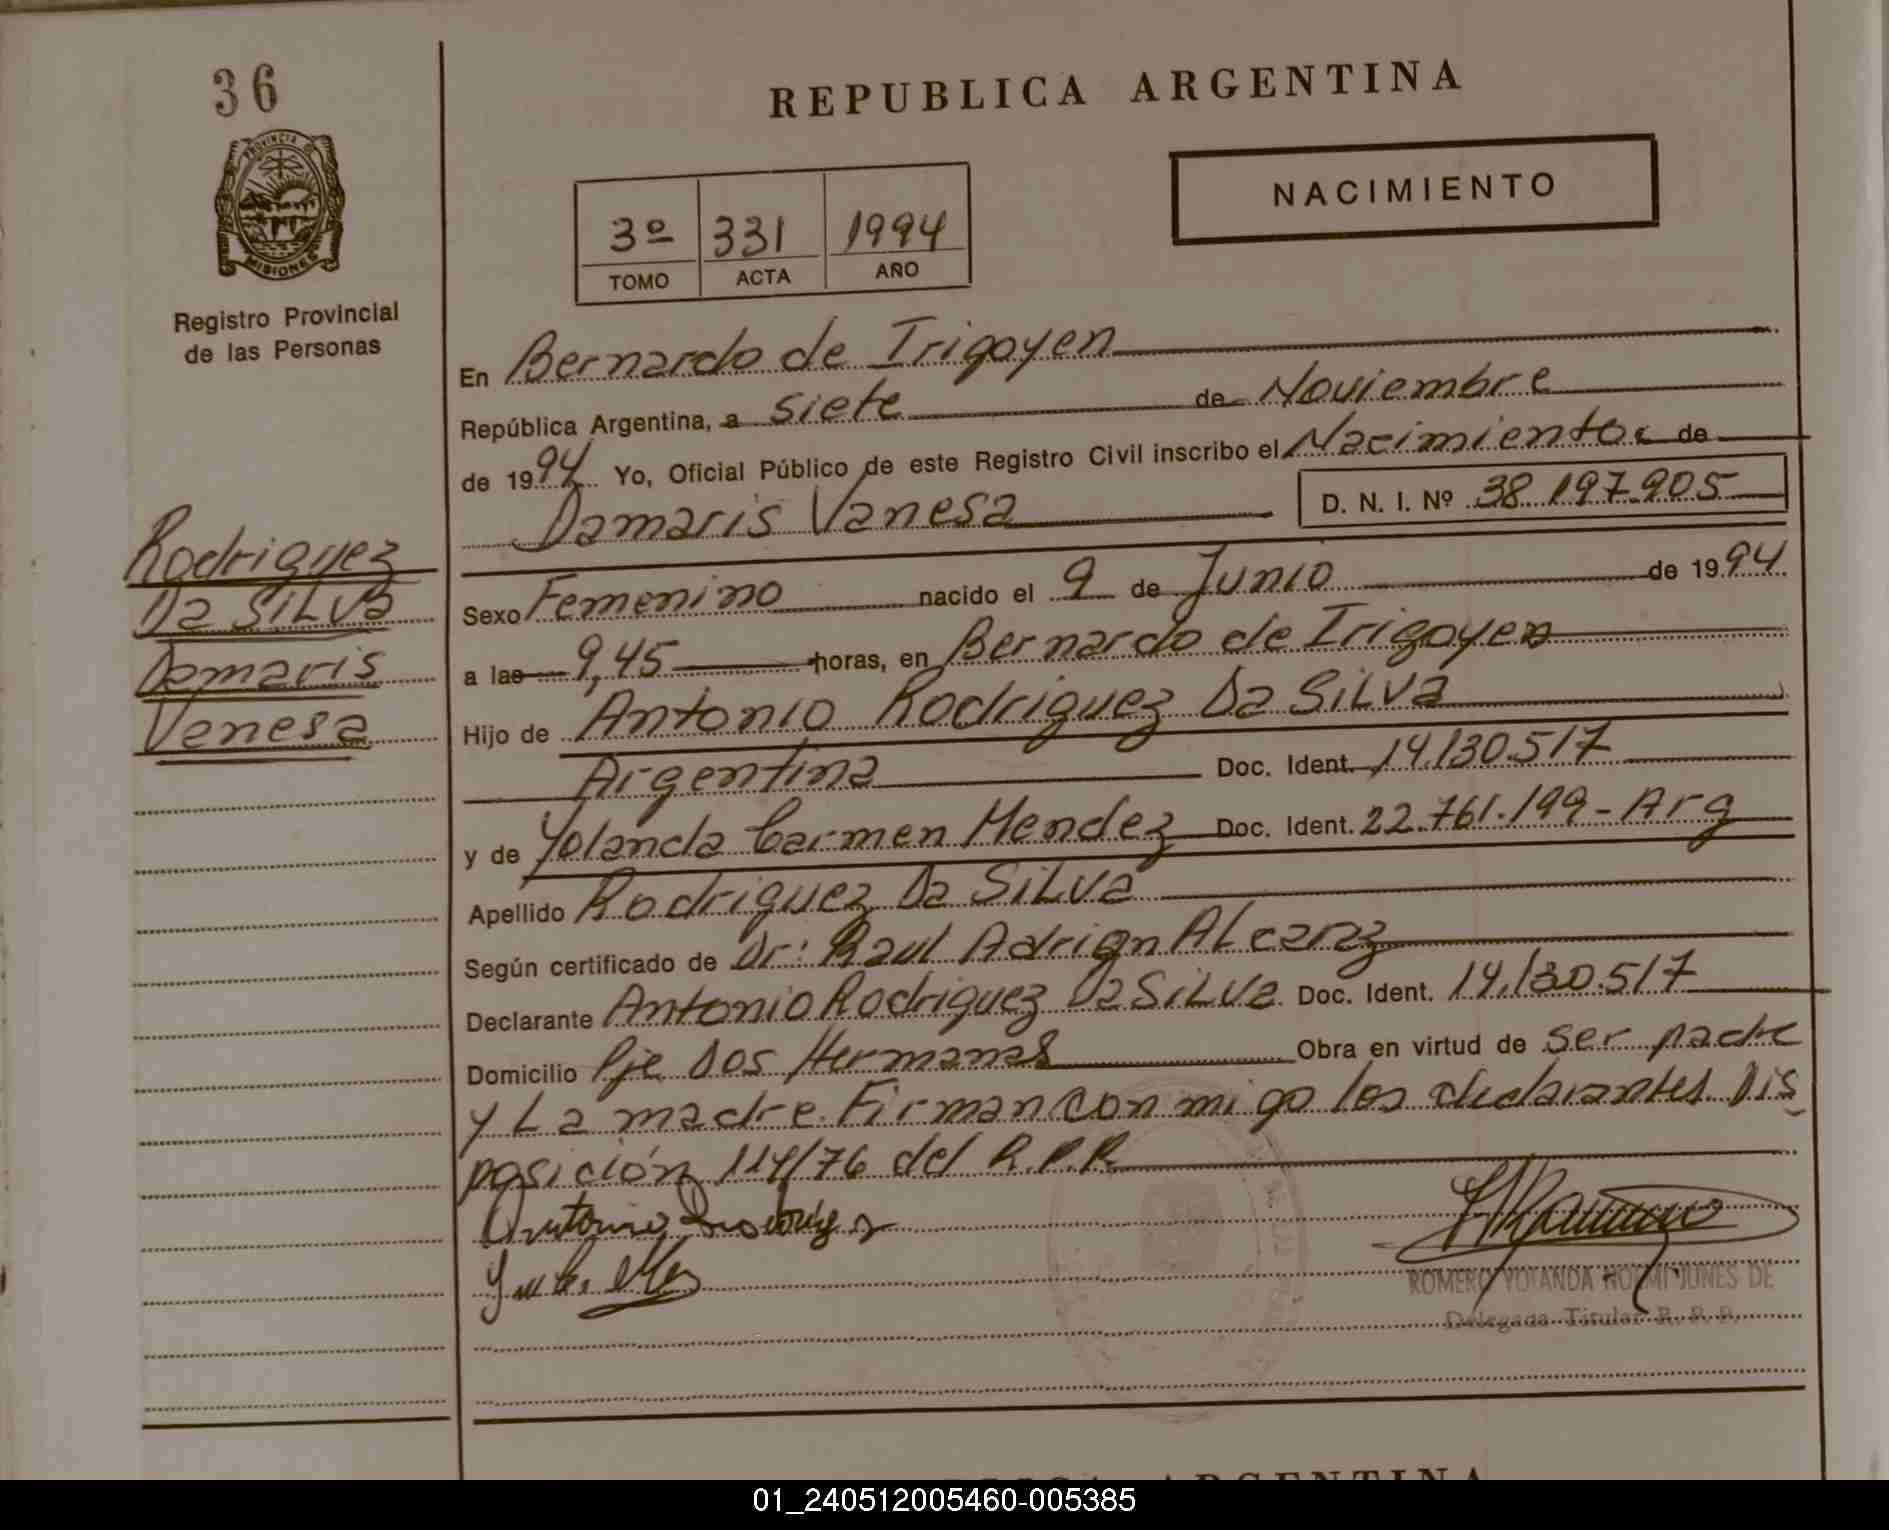 36
REPUBLICA ARGENTINA
PROVINCIA DE
MISIONES
Registro Provincial
de las Personas
NACIMIENTO
3º 331 1994
TOMO ACTA AÑO
En Bernardo de Irigoyen
República Argentina, a siete de Noviembre
de 1994 Yo, Oficial Público de este Registro Civil inscribo el Nacimiento de
Damaris Vanesa D. N. I. Nº 38.197.905
Rodriguez
Da SiLva
Damaris
Venesa
Sexo Femenino nacido el 9 de Junio de 1994
a las 9,45 horas, en Bernardo de Irigoyen
Hijo de Antonio Rodriguez Da SiLva
Argentina Doc. Ident. 14.130.517
y de Yolanda Carmen Mendez Doc. Ident. 22.761.199 - Arg
Apellido Rodriguez Da SiLva
Según certificado de Dr: Raul Adrian ALcaraz
Declarante Antonio Rodriguez Da SiLva Doc. Ident. 14.130.517
Domicilio Pje Dos Hermanas Obra en virtud de ser padre
y La madre. Firman con migo los declarantes. Dis
posición 114/76 del R.P.P.
Antonio Rodriguez
ROMERO YOLANDA NOEMI JUNES DE
Delegada Titular R. P. P.
REPUBLICA ARGENTINA
01_240512005460-005385